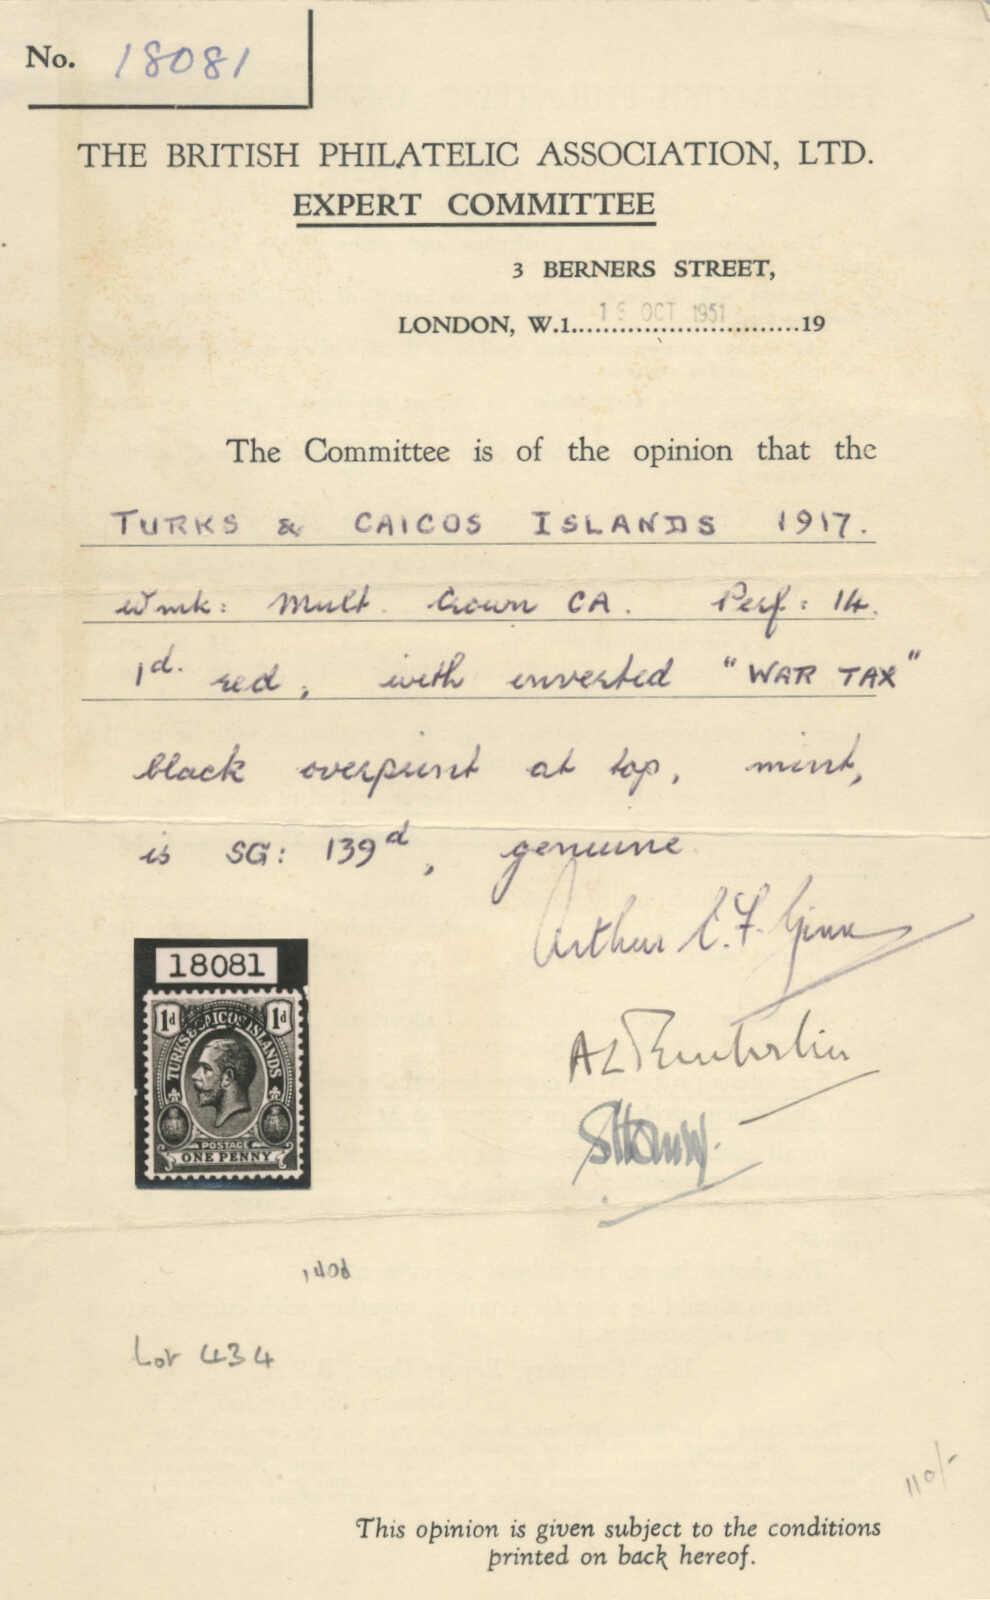 No. 18081
THE BRITISH PHILATELIC ASSOCIATION, LTD.
EXPERT COMMITTEE
3 BERNERS STREET,
LONDON, W.1. OCT 1951 19
The Committee is of the opinion that the
TURKS & CAICOS ISLANDS 1917.
Wmk: Mult. Crown CA. Perf: 14.
1d. red, with inverted "WAR TAX"
black overprint at top, mint,
is SG: 139d, genuine
Arthur C. F. Ginn
18081
1d 1d
TURKS & CAICOS ISLANDS
POSTAGE
ONE PENNY
140d
Lot 434
110/-
This opinion is given subject to the conditions
printed on back hereof.